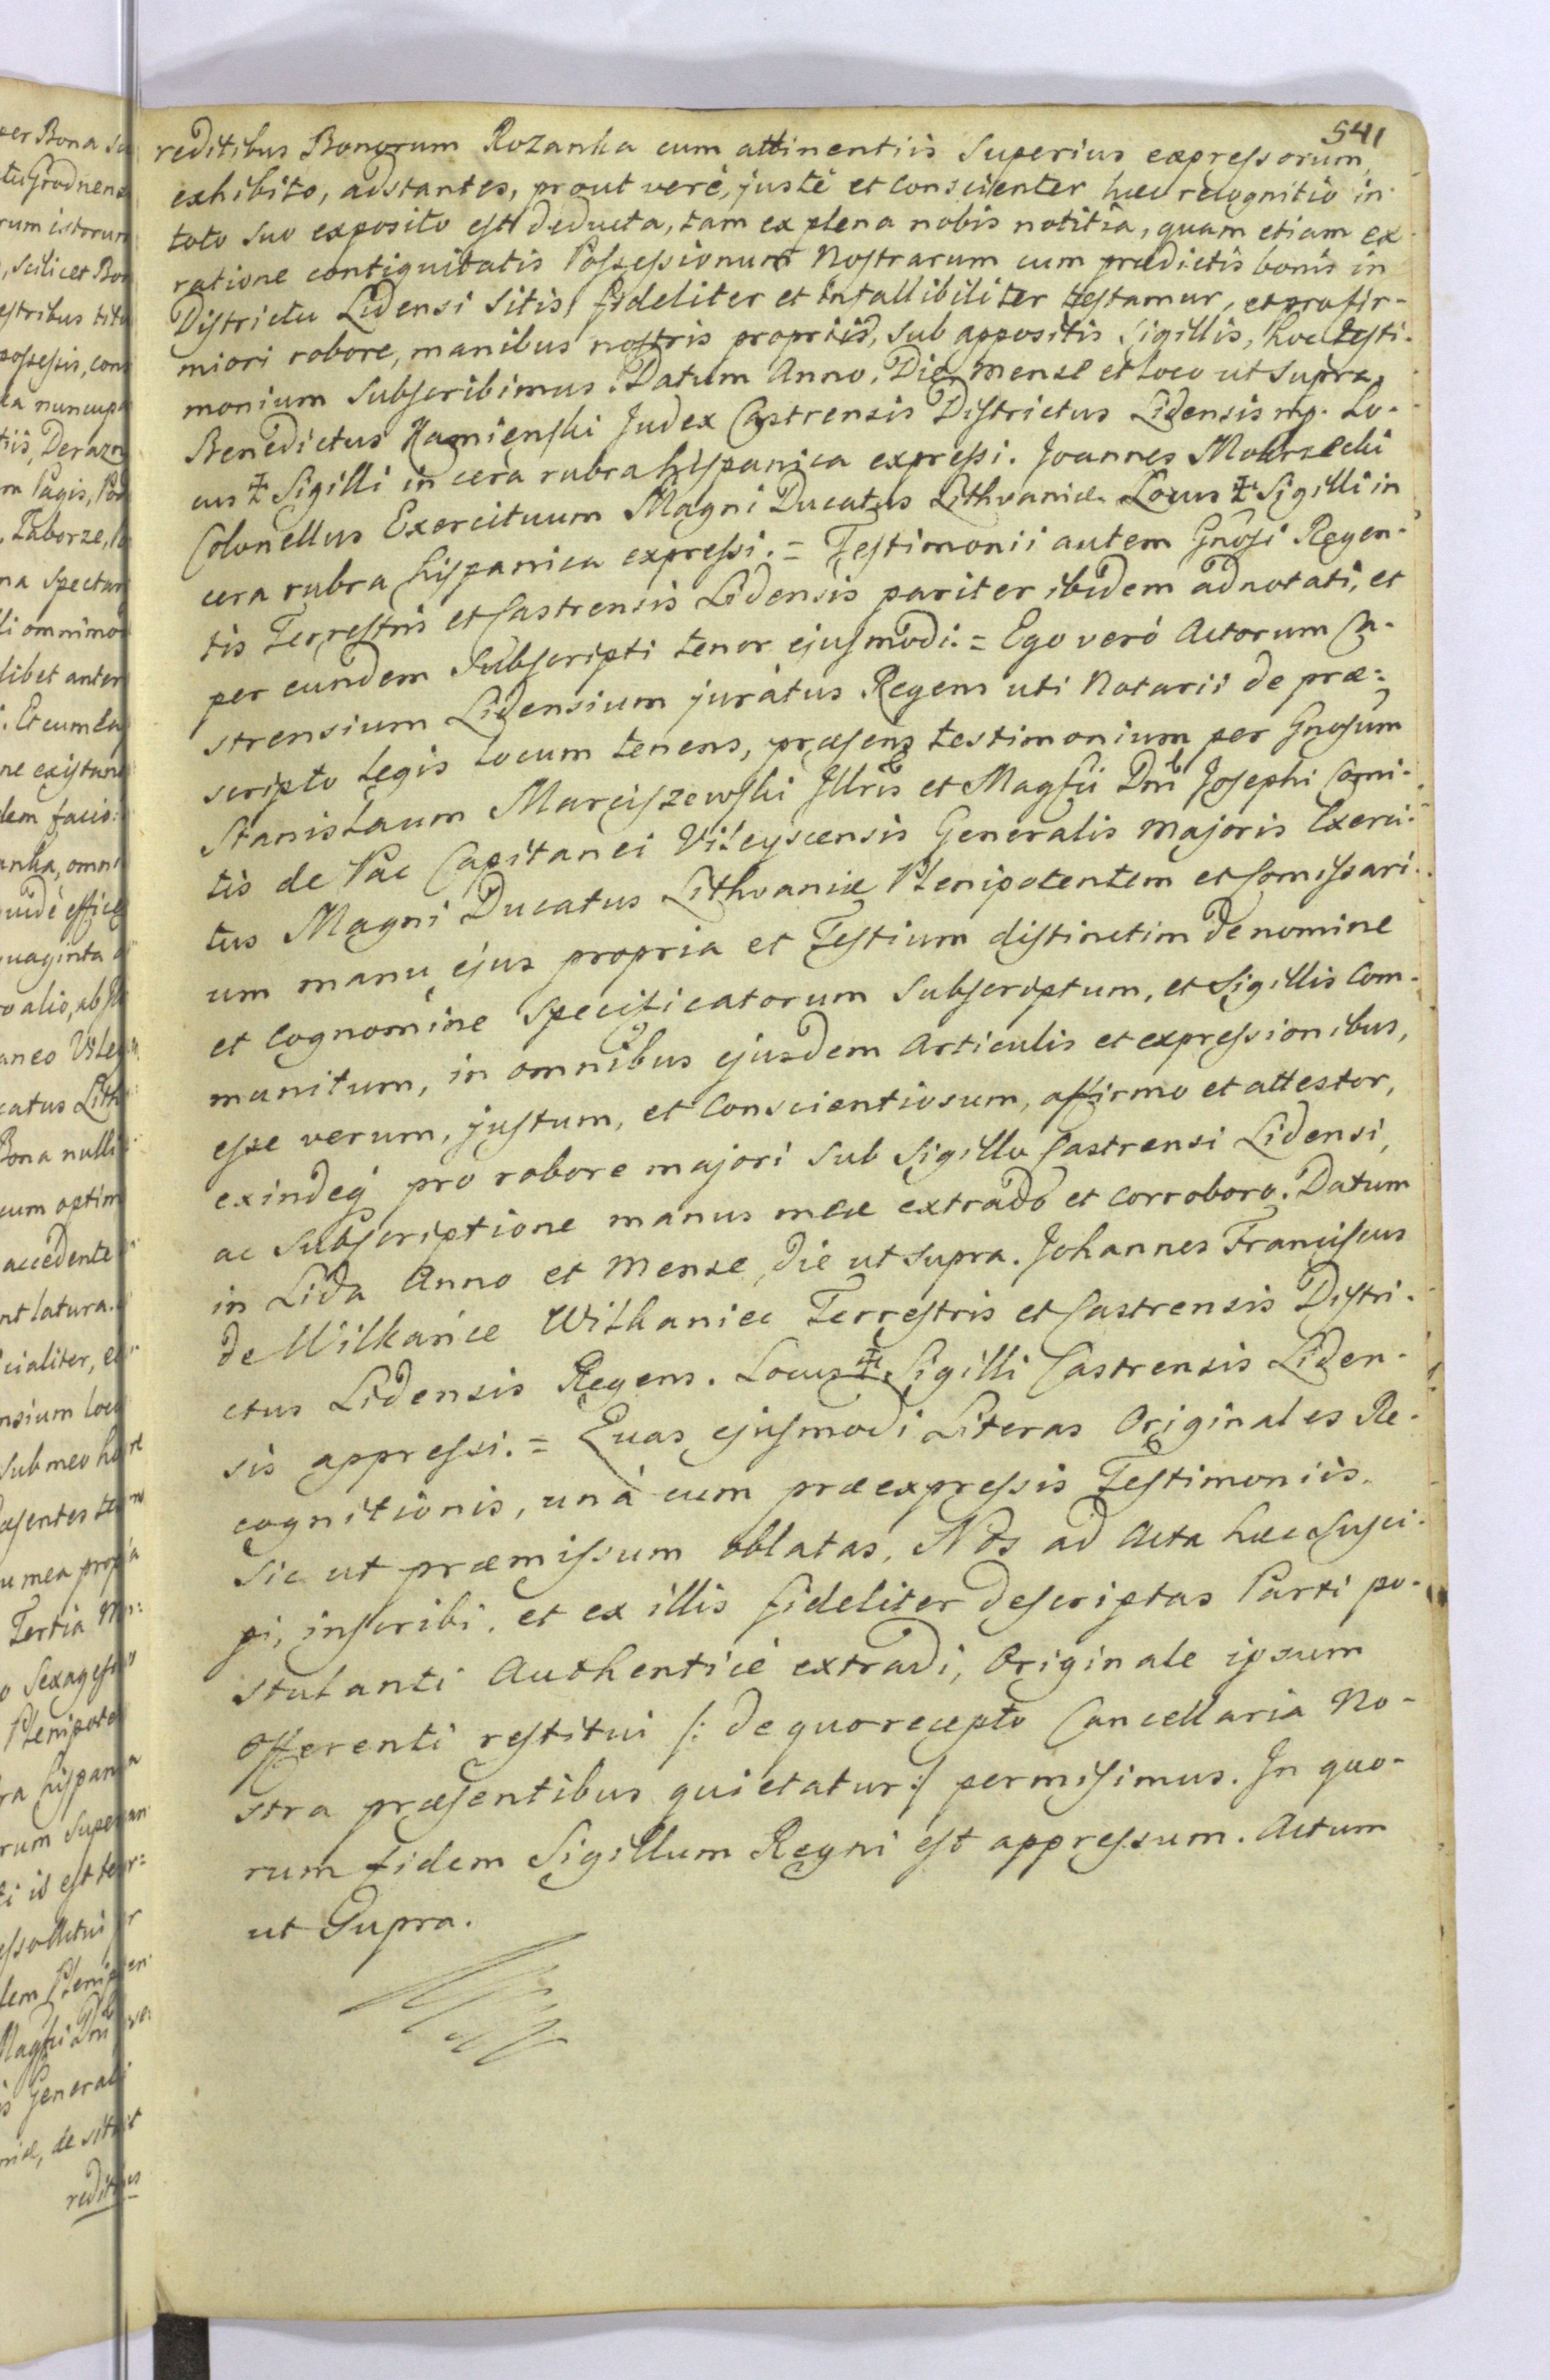 541
reditibus Bonorum Rozanka cum attinentiis Superius expressorum,
exhibito, adstantes, prout veré, justé et conscienter hæc recognitio in
toto suo exposito est deducta, tam ex plena nobis notitia, quam etiam ex
ratione contiguitatis Possessionum Nostrarum cum prædictis bonis in
Districtu Lidensi sitis, fideliter et infallibiliter testamur, et pro fir-
miori robore, manibus nostris propriis, sub appositis Sigillis, hoc testi-
monium Subscribimus. Datum Anno, Die, Mense et loco ut Supra.
Benedictus Kamienski Judex Castrensis Districtus Lidensis mp. Lo-
cus ‡ Sigilli in cera rubra hispanica expressi. Joannes Mokrzecki
Colonellus Exercituum Magni Ducatus Lithvaniæ. Locus ‡ Sigilli in
cera rubra hispanica expressi. = Testimonii autem Gnosi Regen-
tis Terrestris et Castrensis Lidensis pariter ibidem adnotati, et
per eundem Subscripti tenor ejusmodi. = Ego veró Actorum Ca-
strensium Lidensium juratus Regens uti Notarii de præ-
scripto Legis locum tenens, præsens testimonium per Gnosum
Stanislaum Marciszewski Illris et Magfii Dni Josephi Comi-
tis de Pac Capitanei Vileyscensis Generalis Majoris Exerci-
tus Magni Ducatus Lithvaniæ Plenipotentem et Comissari-
um manu ejus propria et Testium distinctim de nomine
et Cognomine Specificatorum Subscriptum, et Sigillis Com-
munitum, in omnibus ejusdem Articulis et expressionibus,
esse verum, justum, et Conscientiosum, affirmo et attestor,
exindeq pro robore majori Sub Sigillo Castrensi Lidensi,
ac Subscriptione manus meæ extrado et corroboro. Datum
in Lida Anno et Mense, die ut supra. Johannes Franciscus
de Wilkańce Wilkaniec Terrestris et Castrensis Distri-
ctus Lidensis Regens. Locus ‡ Sigilli Castrensis Liden-
sis appressi. = Quas ejusmodi Literas Originales Re-
cognitionis, uná cum præexpressis Testimoniis.
Sic ut præmissum oblatas, Nos ad Acta hæc Susci-
pi, inscribi, et ex illis fideliter descriptas Parti po-
stulanti Authenticé extradi, Originale ipsum
Offerenti restitui /: de quo recepto Cancellaria No-
stra præsentibus quietatur :/ permisimus. In quo-
rum fidem Sigillum Regni est appressum. Actum
ut Supra.